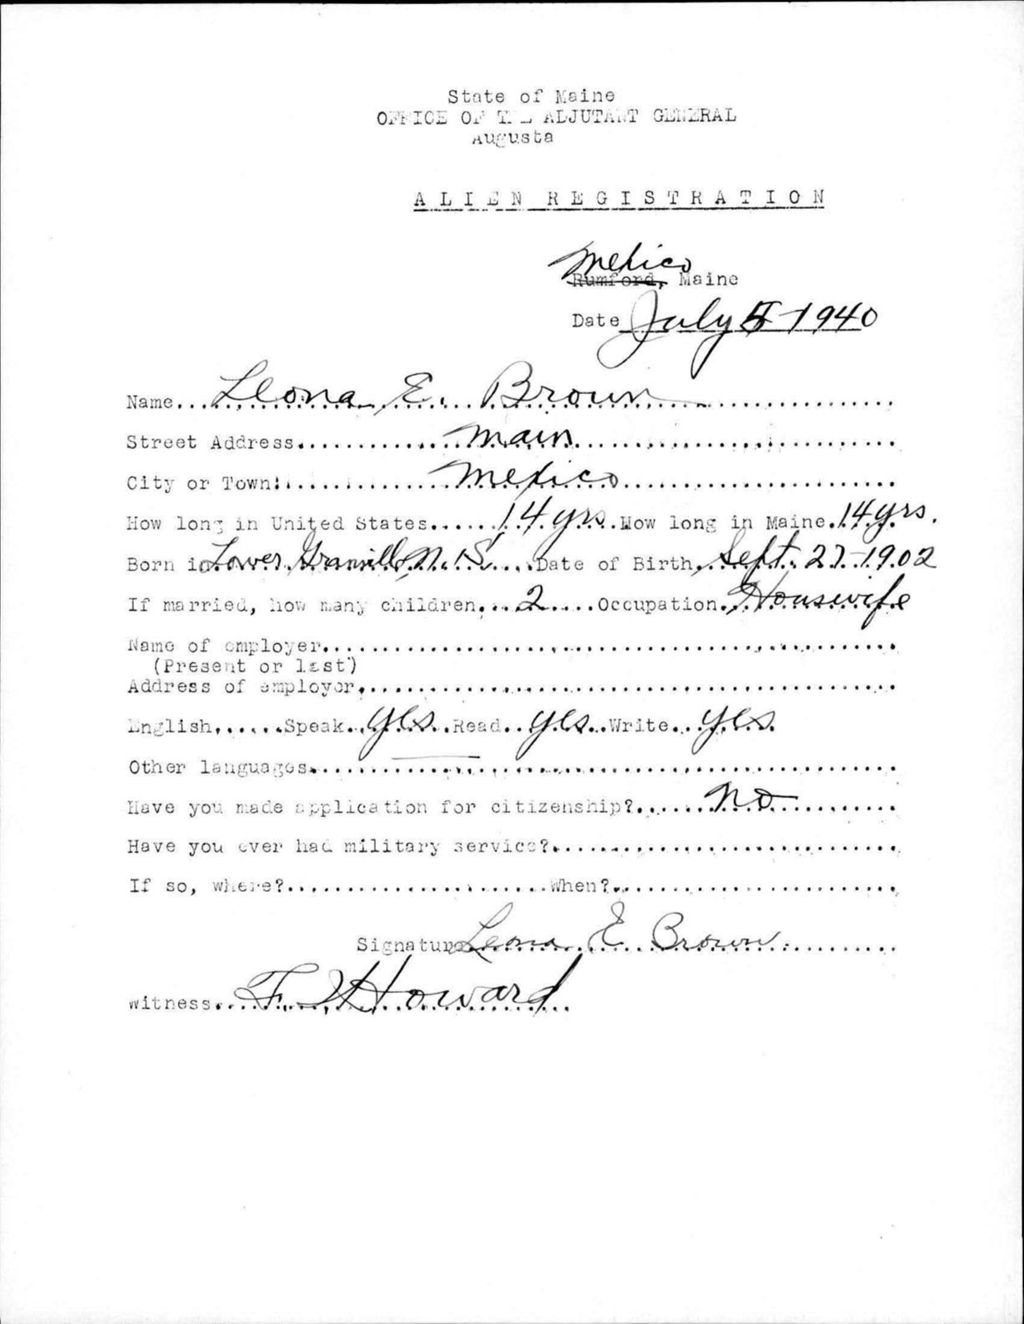 State of Maine
OFFICE OF THE ADJUTANT GENERAL
Augusta
ALIEN REGISTRATION
Mexico
Rumford, Maine
Date July 5 1940
Name Leona E. Brown
Street Address Main
City or Town Mexico
How long in United States 14 yrs. How long in Maine 14 yrs.
Born in Lower Granville, N.S. Date of Birth Sept. 27-1902
If married, how many children 2 Occupation Housewife
Name of employer
(Present or last)
Address of employer
English Speak yes Read yes Write yes
Other languages
Have you made application for citizenship? No
Have you ever had military service?
If so, where? When?
Signature Leona E. Brown
Witness Howard